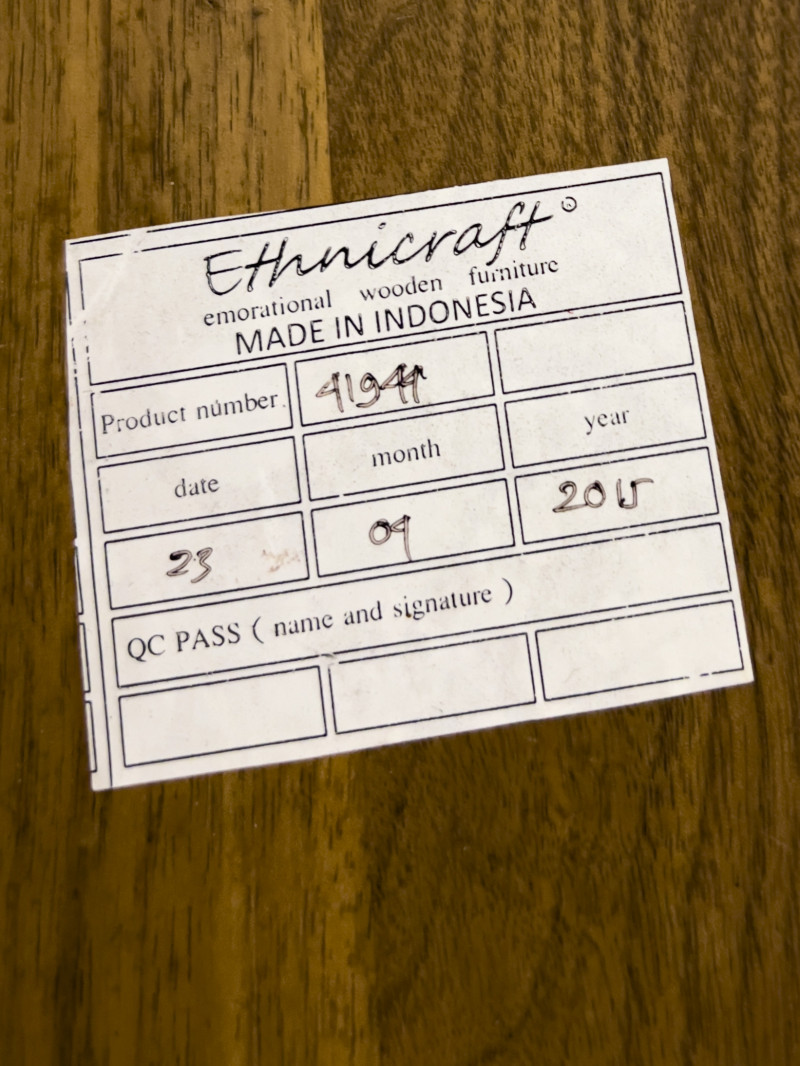 Ethnicraft®
emorational wooden furniture
MADE IN INDONESIA
Product number. 41944
date month year
23 09 2015
QC PASS ( name and signature )